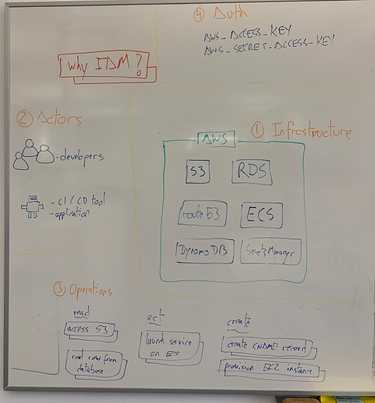 ④ Auth
AWS_ACCESS_KEY
AWS_SECRET_ACCESS_KEY
Why IAM?
② Actors
- developers
- CI/CD tool
- application
① Infrastructure
AWS
S3
RDS
route53
ECS
DynamoDB
③ Operations
read
access S3
read row from
database
act
service
on
create
create CNAME record
provision EC2 instance